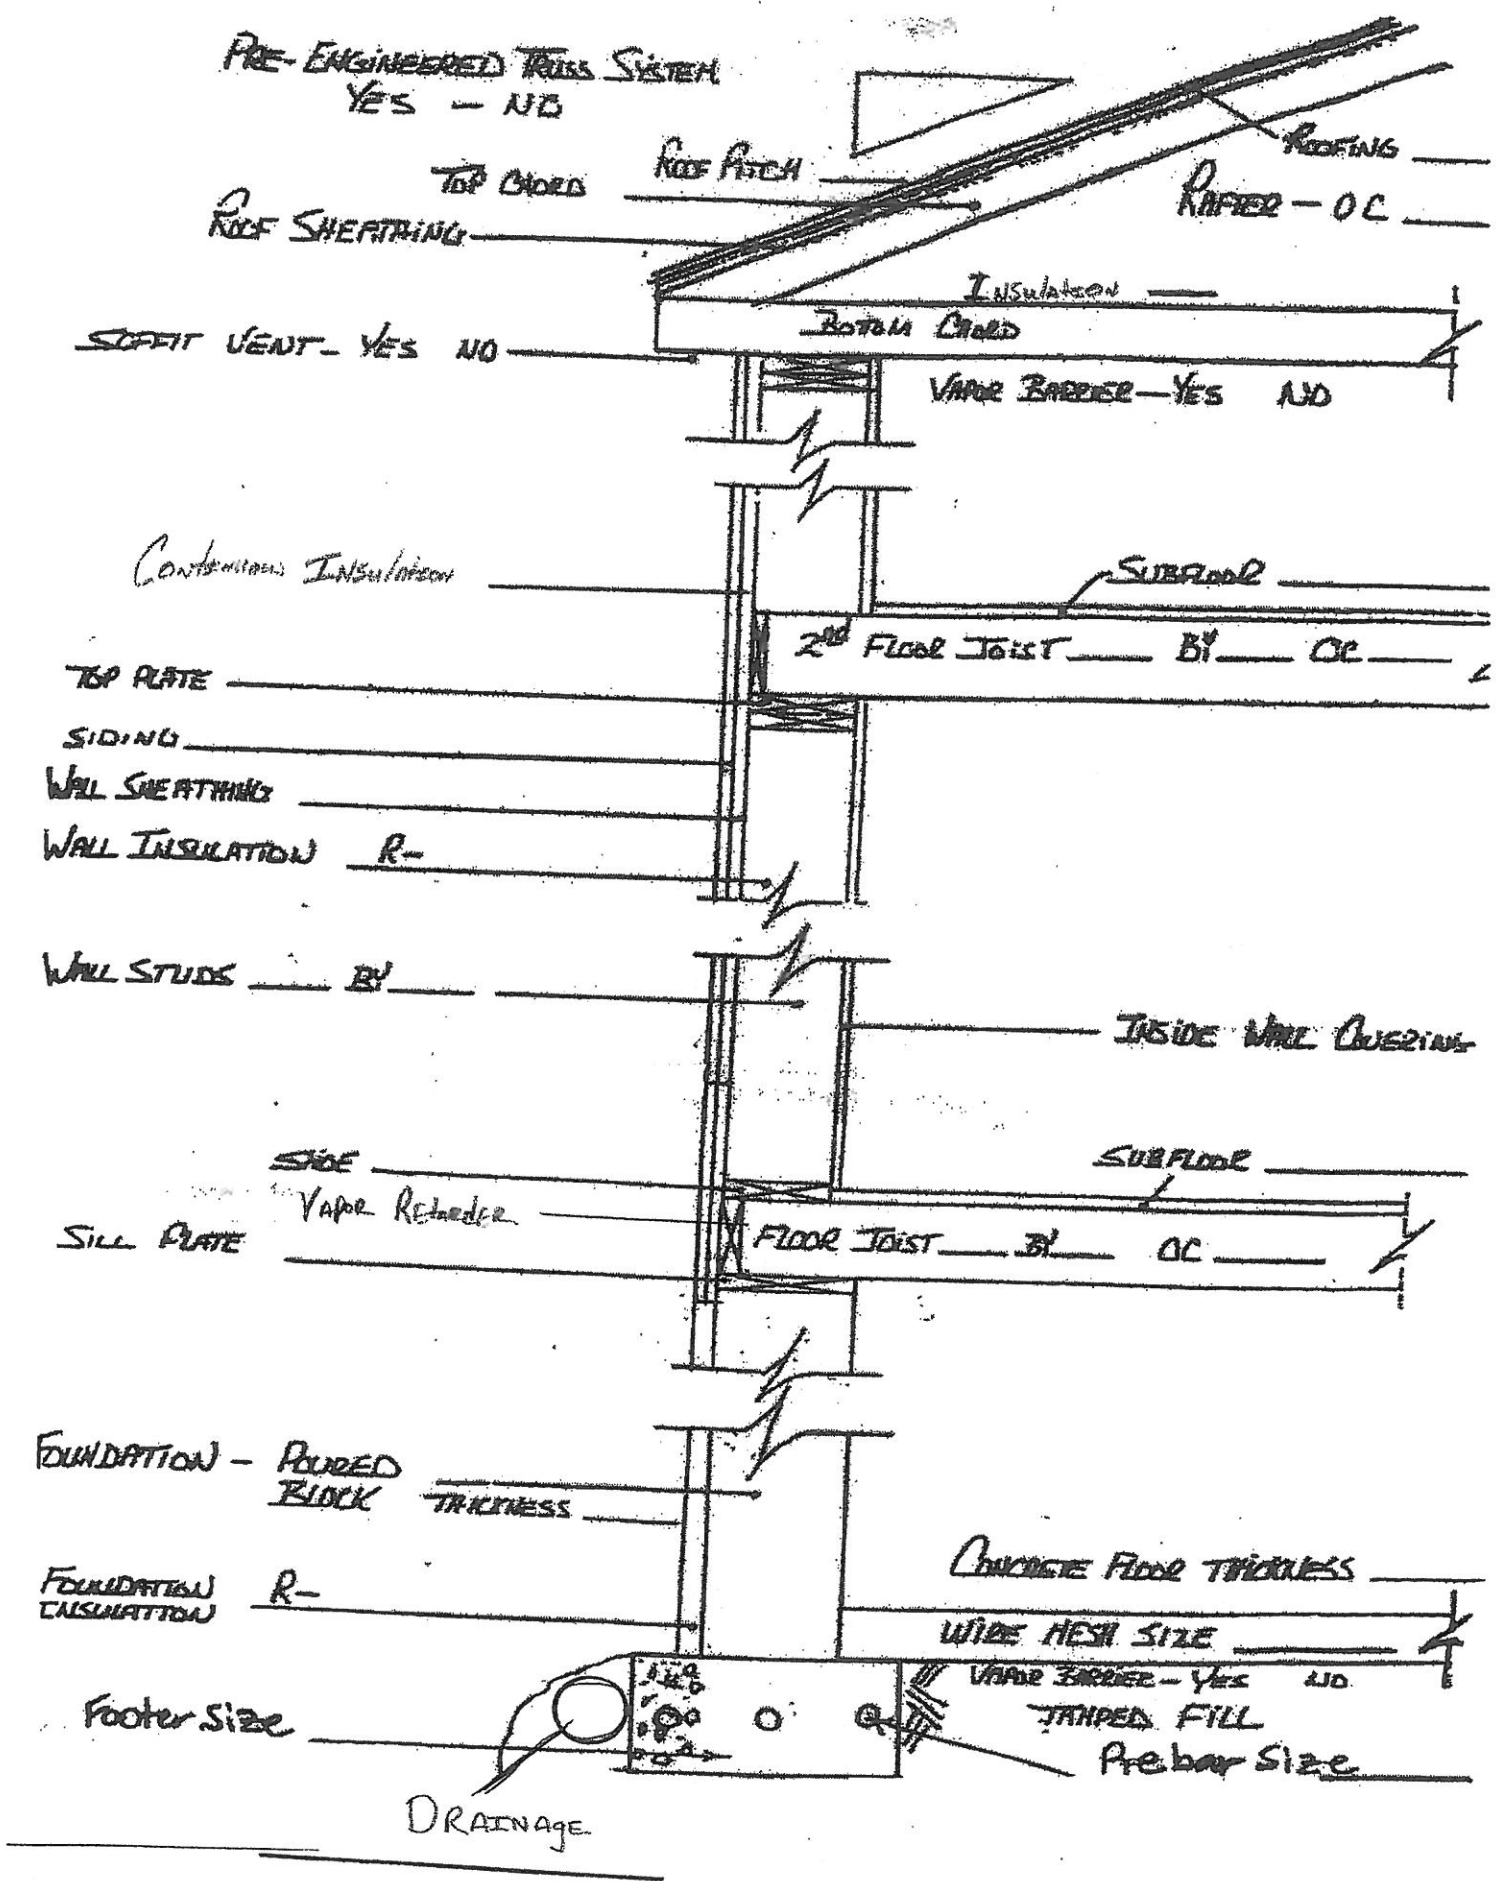 PRE-ENGINEERED TRUSS SYSTEM
YES - NO
ROOFING
ROOF PITCH
TOP CHORD
RAFTER - OC
ROOF SHEATHING
INSULATION
BOTOM CHORD
SOFFIT VENT - YES NO
VAPOR BARRIER - YES NO
CONTINUOUS INSULATION
SUBFLOOR
2nd FLOOR JOIST BY OC
TOP PLATE
SIDING
WALL SHEATHING
WALL INSULATION R-
WALL STUDS BY
INSIDE WALL COVERING
SHOE
SUBFLOOR
VAPOR RETARDER
SILL PLATE
FLOOR JOIST BY OC
FOUNDATION - POURED
BLOCK THICKNESS
CONCRETE FLOOR THICKNESS
FOUNDATION R-
INSULATION
WIRE MESH SIZE
VAPOR BARRIER - YES NO
Footer Size
TAMPED FILL
Prebar Size
DRAINAgE